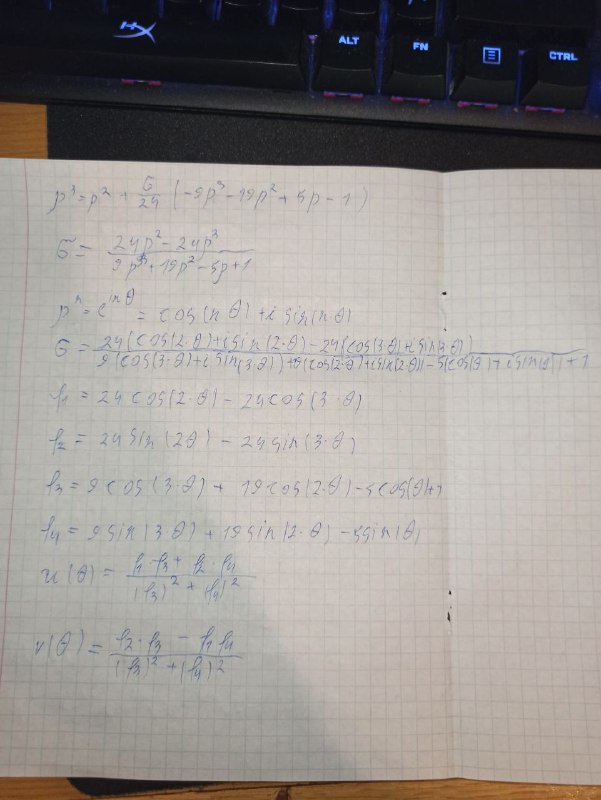 ALT
FN
CTRL
p³ = p² + σ/24 (-9p³ - 19p² + 5p - 1)
σ = (24p² - 24p³)/(9p³ + 19p² - 5p + 1)
pⁿ = e^{inθ} = cos(nθ) + i sin(nθ)
σ = (24(cos(2·θ) + i sin(2·θ) - 24(cos(3·θ) + i sin(3·θ))/(9(cos(3·θ) + i sin(3·θ)) + 19(cos(2·θ) + i sin(2·θ)) - 5(cos(θ) + i sin(θ)) + 1
f₁ = 24cos(2·θ) - 24cos(3·θ)
f₂ = 24sin(2θ) - 24sin(3·θ)
f₃ = 9cos(3·θ) + 19cos(2·θ) - 5cos(θ)+1
f₄ = 9sin(3·θ) + 19sin(2·θ) - 5sin(θ)
u(θ) = (f₁·f₃ + f₂·f₄)/((f₃)² + (f₄)²
v(θ) = (f₂·f₃ - f₁f₄)/((f₃)² + (f₄)²